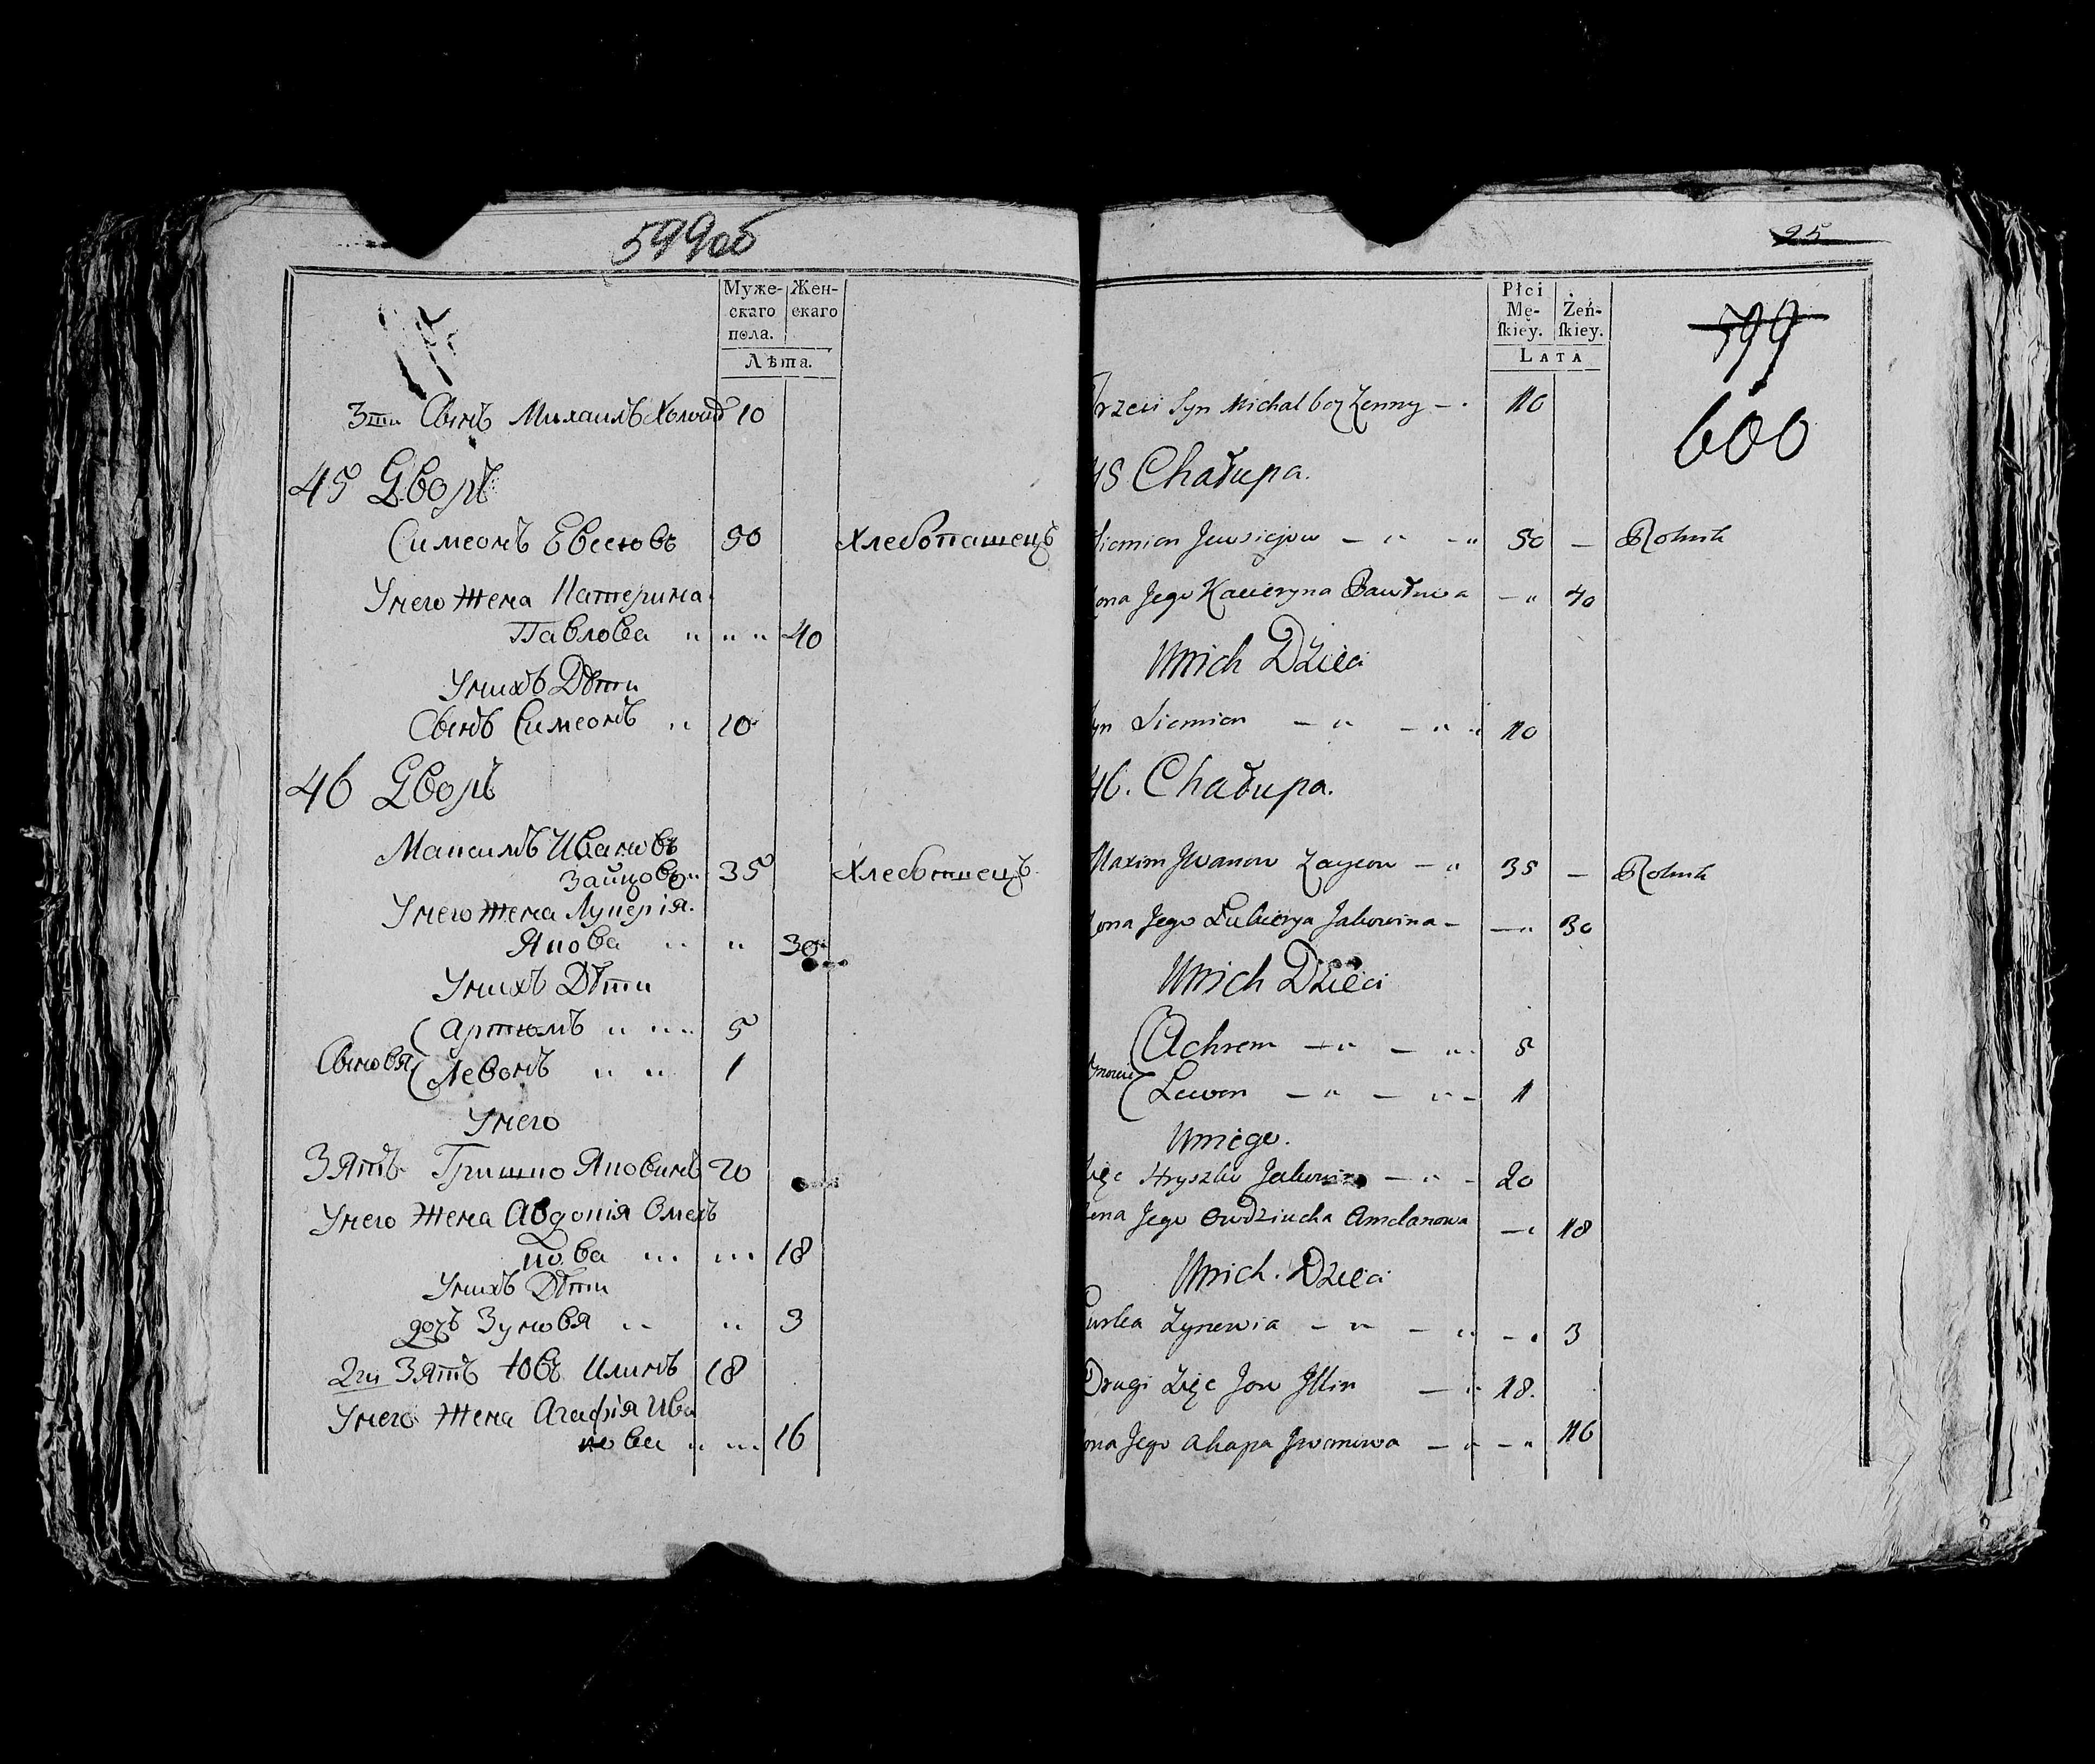 599об
Муже-
скаго
пола.
Жен-
скаго
Лѣта.
3ти Сынъ Михаилъ Холост 10
45 Дворъ
Симеонъ Евсеювъ 50 Хлебопашецъ
Унего жена Катерина
Павлова „ „ „ 40
Унихъ Дѣти
Сынъ Симеонъ „ 10
46 Дворъ
Максимъ Ивановъ
Зайцовъ „ 35 Хлебопшецъ
Унего жена Лукерія.
Якова „ „ 30
Унихъ Дѣти
Артюмъ „ „ „ 5
Сыновя Левонъ „ „ 1
Унего
Зять Гришко Яковинъ 20
Унего жена Авдокія Омель
кова „ „ 18
Унихъ Дѣти
дочъ Зуновя „ „ 3
2гй Зять Ювъ Илинъ 18
Унего жена Агафія Ива
нова „ „ 16
25
Płci
Mę-
skiey.
Żeń-
skiey.
LATA
599
600
Trzeci Syn Michal bez Zenny – . 10
45 Chałupa.
Siemion Jewsiejow – „ – „ 50 – Rolnik
Zona Jego Kacieryna Pawłowa – „ 40
Unich Dzieci
Syn Siemion – „ – „ „ 10
46. Chałupa.
Maxim Jwanow Zaycow – „ 35 – Rolnik
Zona Jego Lukierya Jakowina – – „ 30
Unich Dzieci
Achrem – „ – „ . 5
Synowie Lewon – „ – „ – 1
Uniego.
Zięc Hryszko Jakowin – „ – 20
Zena Jego Owdziucha Amelanowa – „ 18
Unich. Dzieci
Curka Zynowia – „ – „ – „ 3
Drugi Zięc Jow Jllin – „ 18.
Zona Jego Ahapa Jwanowa – „ – „ 16